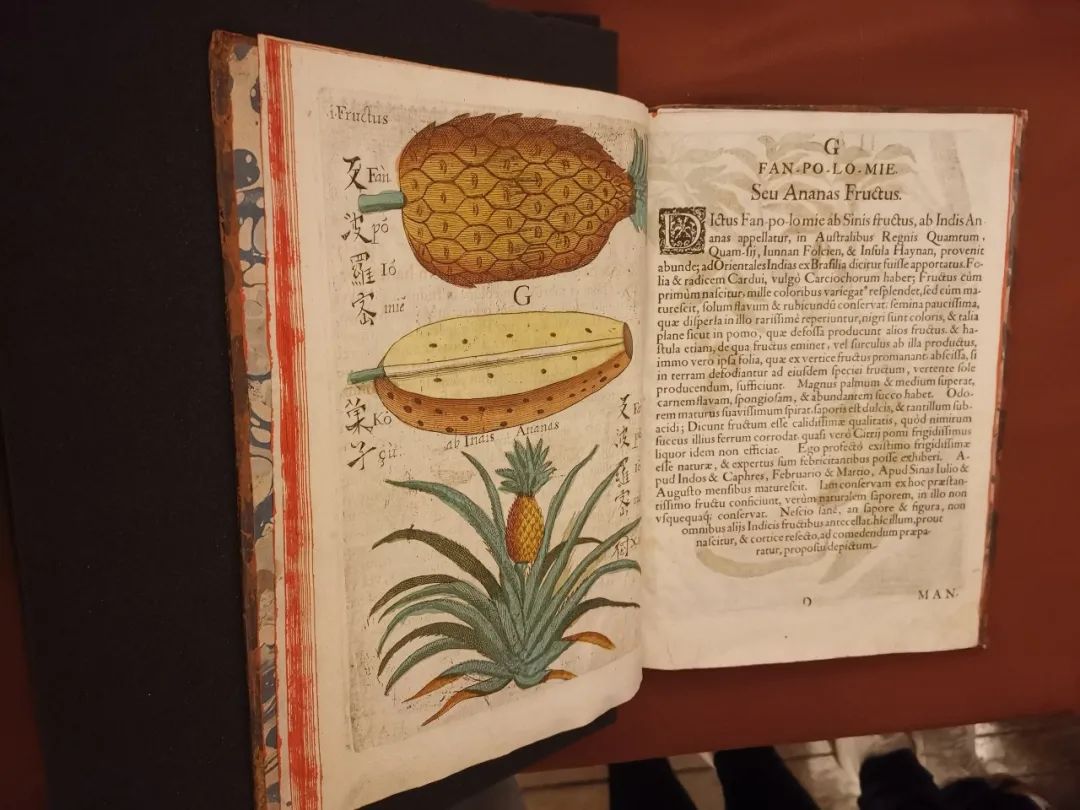 i Fructus
反 Fan
波 pó
羅 ló
密 miĕ
G
菓 Kò
子
ab Indis Ananas
反 Fa
波
羅
密
樹
G
FAN-PO-LO-MIE.
Seu Ananas Fructus.
DIctus Fan-po-lo mie ab Sinis fructus, ab Indis An-
anas appellatur, in Auſtralibus Regnis Quamtum,
Quam-ſij, Iunnan Folcien, & Inſula Haynan, provenit
abunde; ad Orientales Indias ex Braſilia dicitur fuiſſe apportatus. Fo-
lia & radicem Cardui, vulgò Carciochorum habet; Fructus cùm
primùm naſcitur, mille coloribus variegatꝰ reſplendet, ſed cùm ma-
tureſcit, ſolum flavum & rubicundū conſervat. ſemina pauciſſima,
quæ diſperſa in illo rariſſimè reperiuntur, nigri ſunt coloris, & talia
plane ſicut in pomo, quæ defoſſa producunt alios fructus. & ha-
ſtula etiam, de qua fructus eminet, vel ſurculus ab illa productus,
immo vero ipſa folia, quæ ex vertice fructus promanant abſciſſa, ſi
in terram defodiantur ad eiuſdem ſpeciei fructum, vertente ſole
producendum, ſufficiunt. Magnus palmum & medium ſuperat,
carnem flavam, ſpongioſam, & abundantem ſucco habet. Odo-
rem maturus ſuaviſſimum ſpirat. ſaporis eſt dulcis, & tantillum ſub-
acidi; Dicunt fructum eſſe calidiſſimæ qualitatis, quòd nimirum
ſuccus illius ferrum corrodat. quaſi verò Citrij pomi frigidiſſimus
liquor idem non efficiat. Ego profectò exiſtimo frigidiſſimæ
eſſe naturæ, & expertus ſum febricitantibus poſſe exhiberi. A-
pud Indos & Caphres, Februario & Martio, Apud Sinas Iulio &
Auguſto menſibus matureſcit. Iam conſervam ex hoc præſtan-
tiſſimo fructu conficiunt, verùm naturalem ſaporem, in illo non
vſquequaq; conſervat. Neſcio ſanè, an ſapore & figura, non
omnibus alijs Indicis fructibus antecellat. hic illum, prout
naſcitur, & cortice reſecto, ad comedendum præpa-
ratur, propoſui depictum.
MAN-